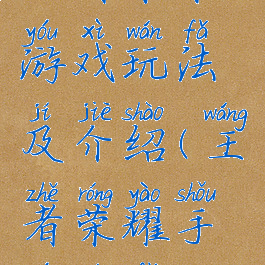 yóu xì wán fǎ
游戏玩法
jí jiè shào wáng
及介绍(王
zhě róng yào shǒu
者荣耀手